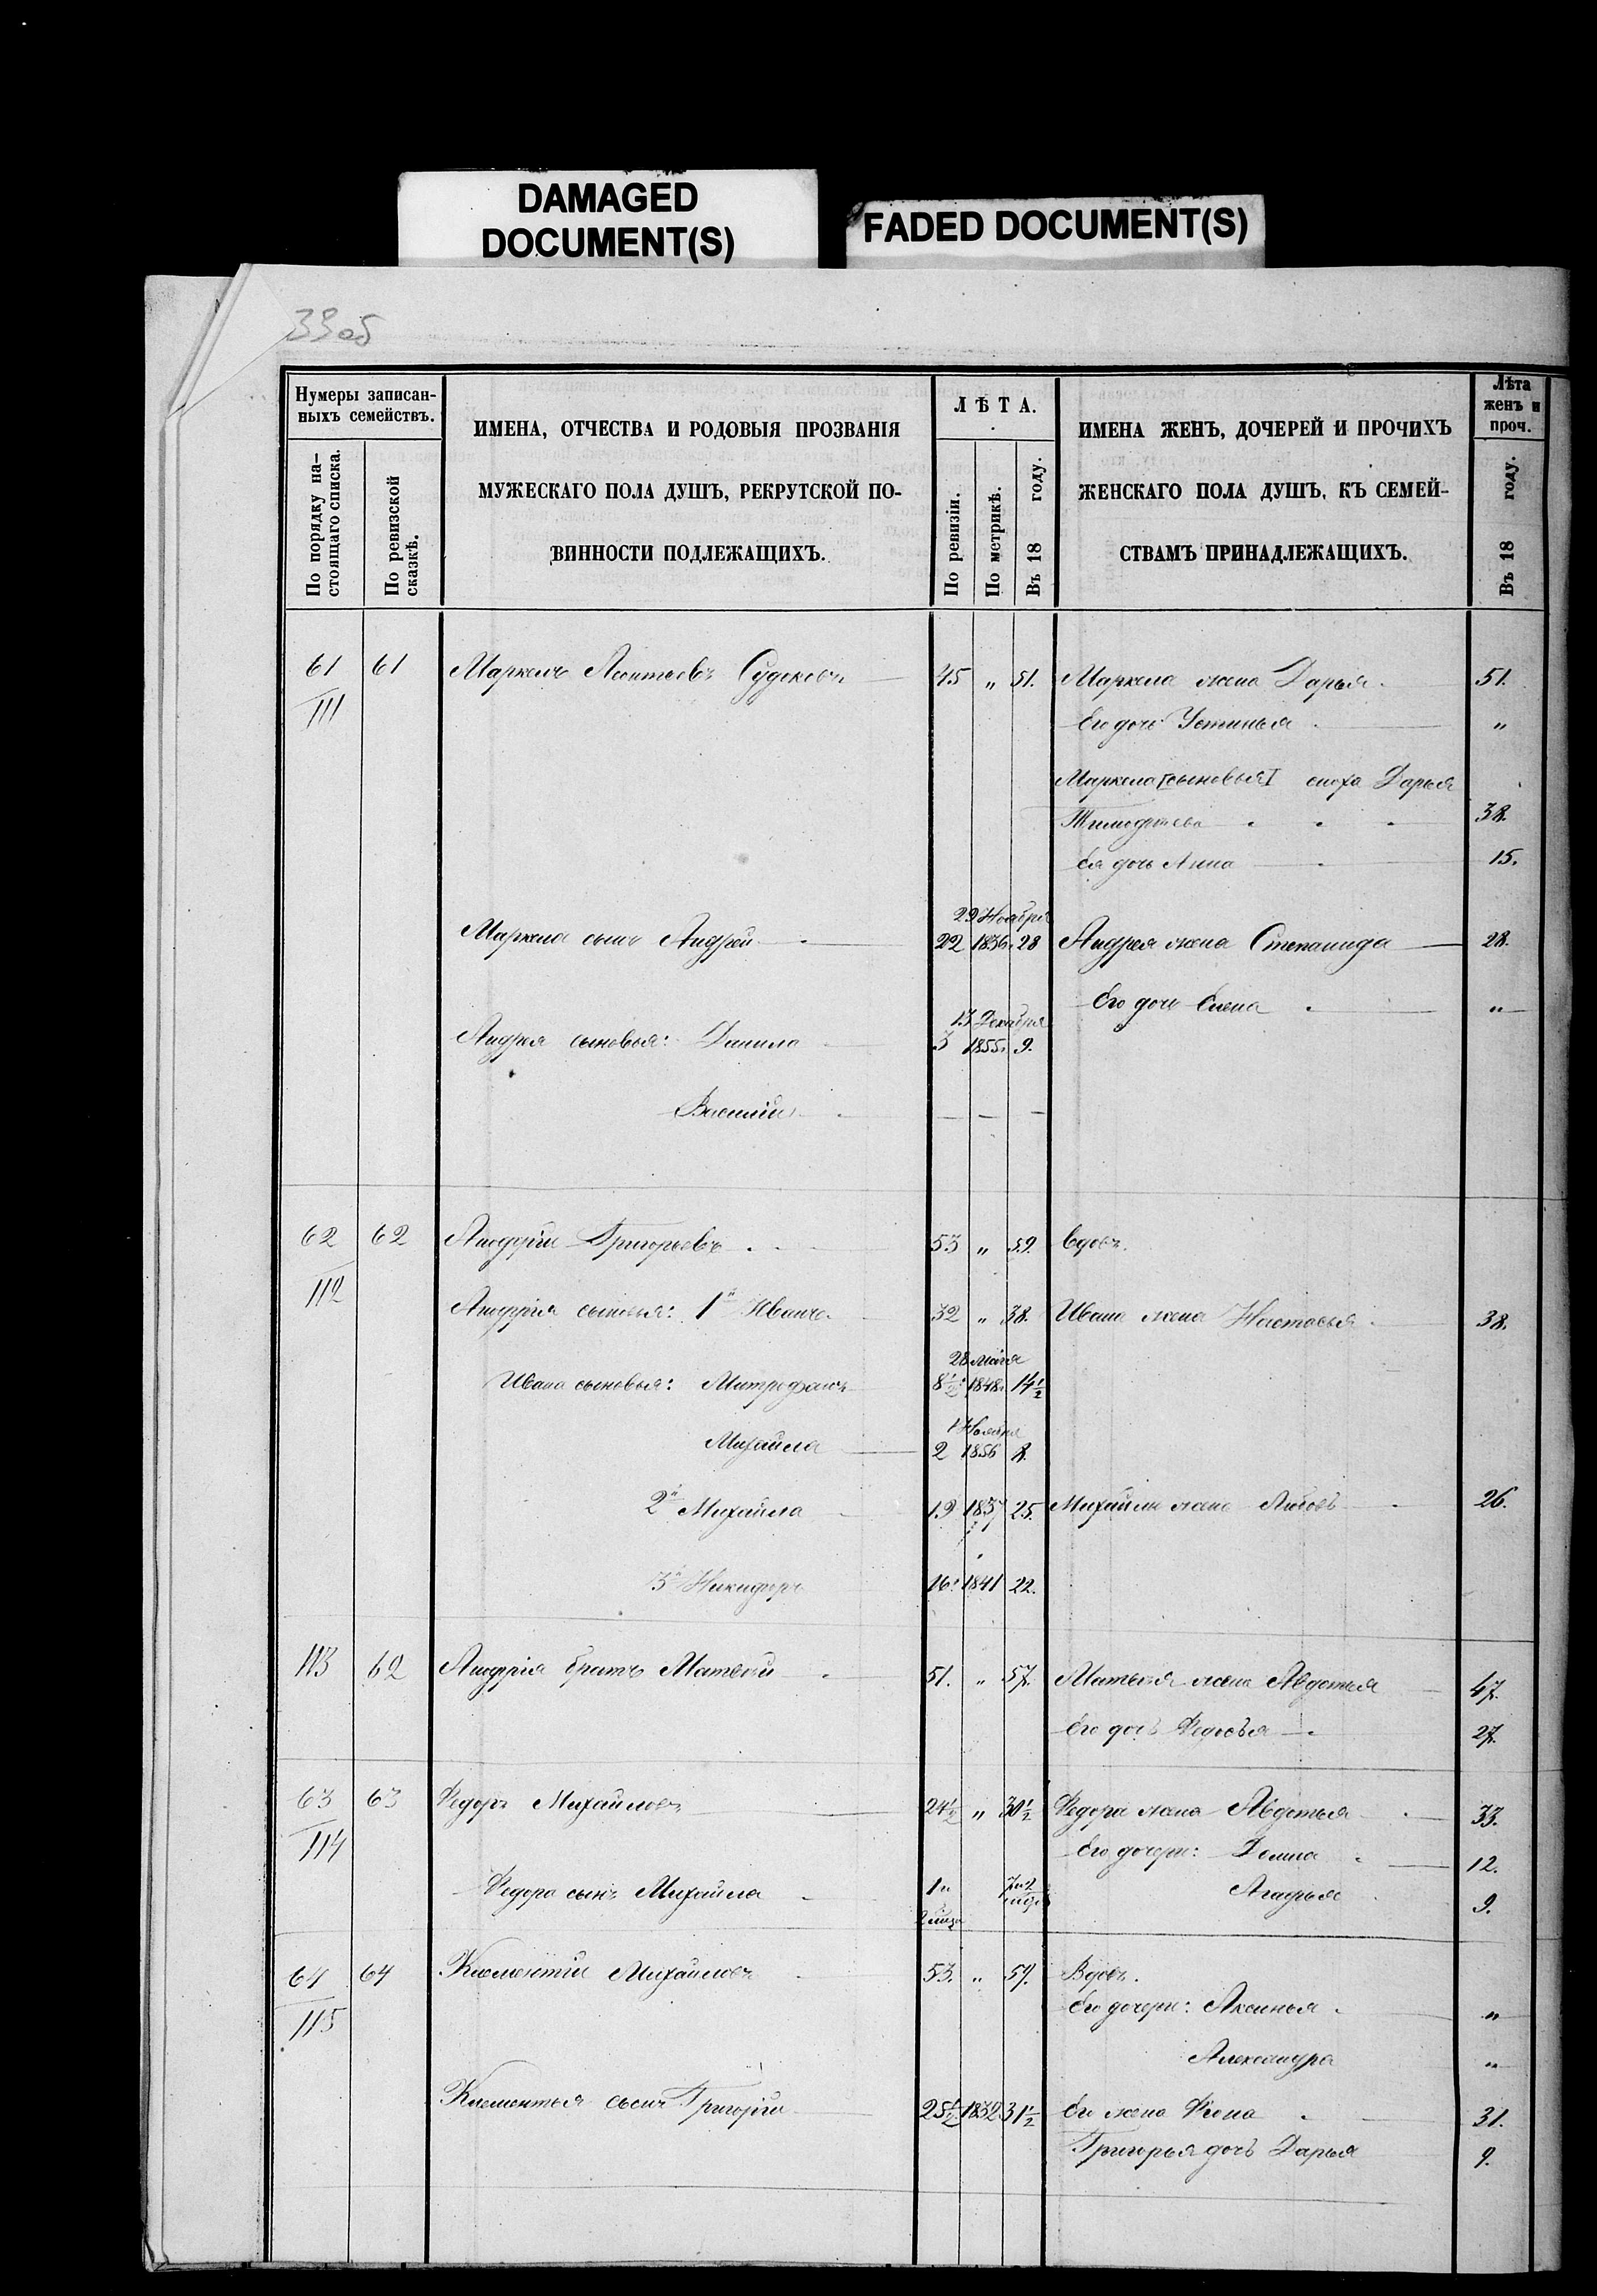 DAMAGED
DOCUMENT(S)
FADED DOCUMENT(S)
33об
Нумеры записан-
ныхъ семействъ.
По порядку на-
стоящаго списка.
По ревизской
сказкѣ.
ИМЕНА, ОТЧЕСТВА И РОДОВЫЯ ПРОЗВАНІЯ
МУЖЕСКАГО ПОЛА ДУШЪ, РЕКРУТСКОЙ ПО-
ВИННОСТИ ПОДЛЕЖАЩИХЪ.
ЛѢТА.
По ревизіи.
По метрикѣ.
Въ 18 году.
ИМЕНА ЖЕНЪ, ДОЧЕРЕЙ И ПРОЧИХЪ
ЖЕНСКАГО ПОЛА ДУШЪ, КЪ СЕМЕЙ-
СТВАМЪ ПРИНАДЛЕЖАЩИХЪ.
Лѣта
женъ и
проч.
Въ 18 году.
61 61 Маркелъ Леонтьевъ 45 " 51. Маркела жена Дарья 51.
111
Его дочь Устинья "
Маркела сыновья I сноха Дарья
Тимофѣева 38.
Ея дочь Анна 15.
29 Ноября
Маркела сынъ Андрей 22 1836 28 Андрея жена Степанида 28.
Его дочь Елена "
13 Декабря
Андрея сыновья: Данила 3 1855 9.
Василій — — —
62 62 Анофрій Григорьевъ 53 " 59. вдовъ.
112
Анофрія сыновья: 1й Иванъ 32 " 38. Ивана жена Настасья 38.
28 мая
Ивана сыновья: Митрофанъ 8 1/2 1848 14 1/2
1 Ноября
Михайла 2 1856 8.
2й Михайла 19 1837 25. Михайлы жена 26.
3й Никифоръ 16 1841 22.
113 62 Анофрія братъ Матвѣй 51. " 57. Матвѣя жена Авдотья 47.
Его дочь Федосья 27.
63 63 Федоръ Михайловъ 24 1/2 " 30 1/2 Федора жена Авдотья 33.
114
Его дочери: Домна 12.
Федора сынъ Михайла 1 и 7 и 2 Агафья 9.
2 мѣся
64 64 Климентій Михайловъ 53. " 59. Вдовъ.
115
Его дочери: Аксинья "
Александра "
Климентья сынъ Григорій 25 1/2 1832 31 1/2 Его жена Фіона 31.
Григорья дочь Дарья 9.